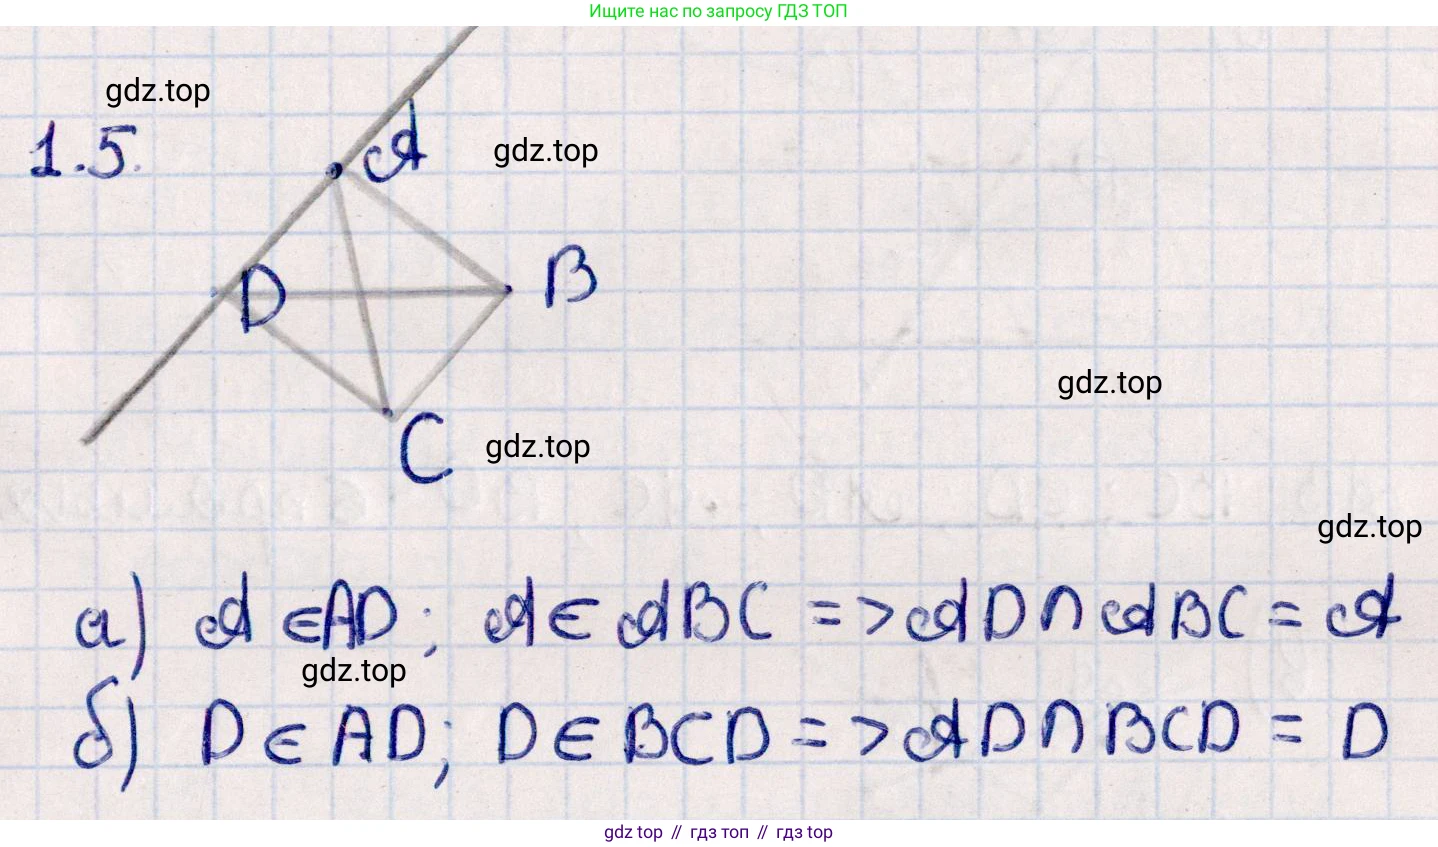 Ищите нас по запросу ГДЗ ТОП
gdz.top
1.5.
A
gdz.top
D
B
gdz.top
C
gdz.top
gdz.top
а) A ∈ AD; A ∈ ABC => AD ∩ ABC = A
gdz.top
б) D ∈ AD; D ∈ BCD => AD ∩ BCD = D
gdz top // гдз топ // гдз top